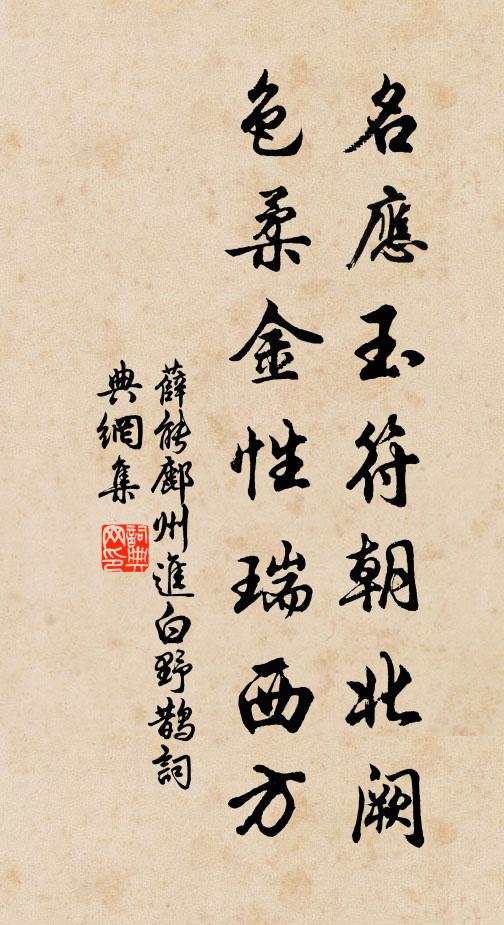 名應玉符朝北闕
色柔金性瑞西方
薛能鄜州進白野鵲詞
典網集
詞典網印